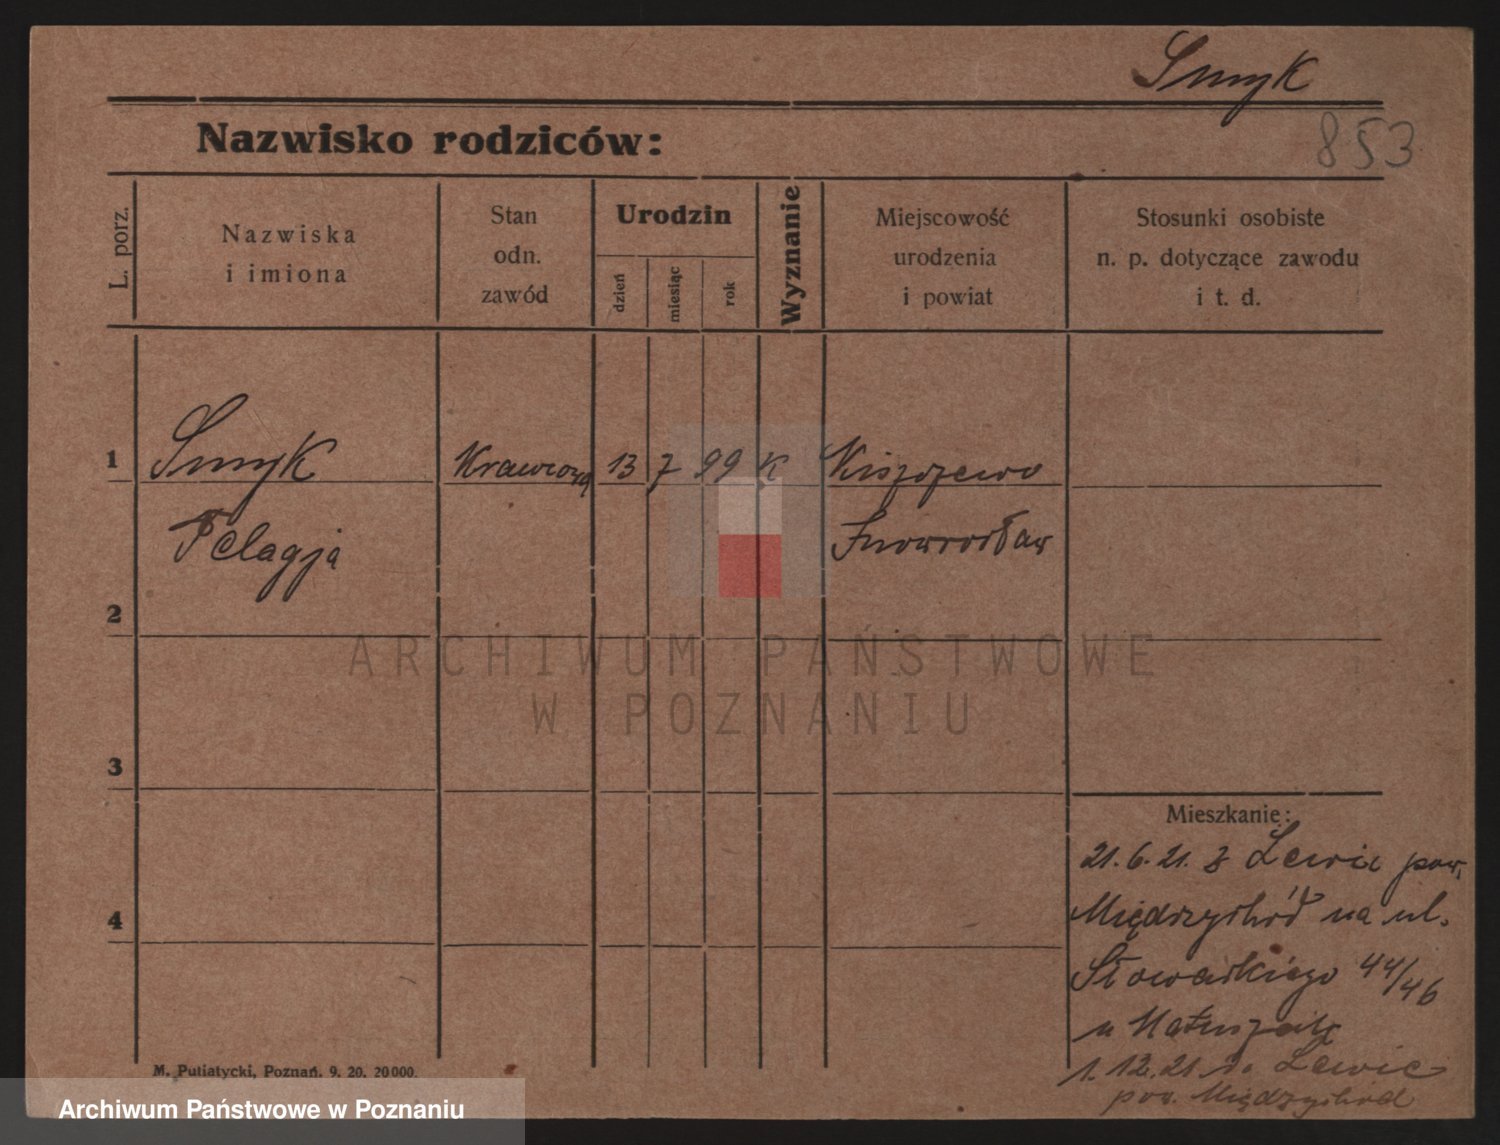 Smyk
853
Nazwisko rodziców:
L. porz.
Nazwiska
i imiona
Stan
odn.
zawód
Urodzin
dzień
miesiąc
rok
Wyznanie
Miejscowość
urodzenia
i powiat
Stosunki osobiste
n. p. dotyczące zawodu
i t. d.
1
Smyk
Pelagja
Krawcowa
13
7
99
K
Kiszczewo
Inowrocław
2
3
4
Mieszkanie:
21. 6. 21. z Lewic pow.
Międzychód na ul.
Słowackiego 44/46
u
1. 12. 21 do Lewic
pow. Międzychód
M. Putiatycki, Poznań. 9. 20. 20000.
ARCHIWUM PAŃSTWOWE
W POZNANIU
Archiwum Państwowe w Poznaniu